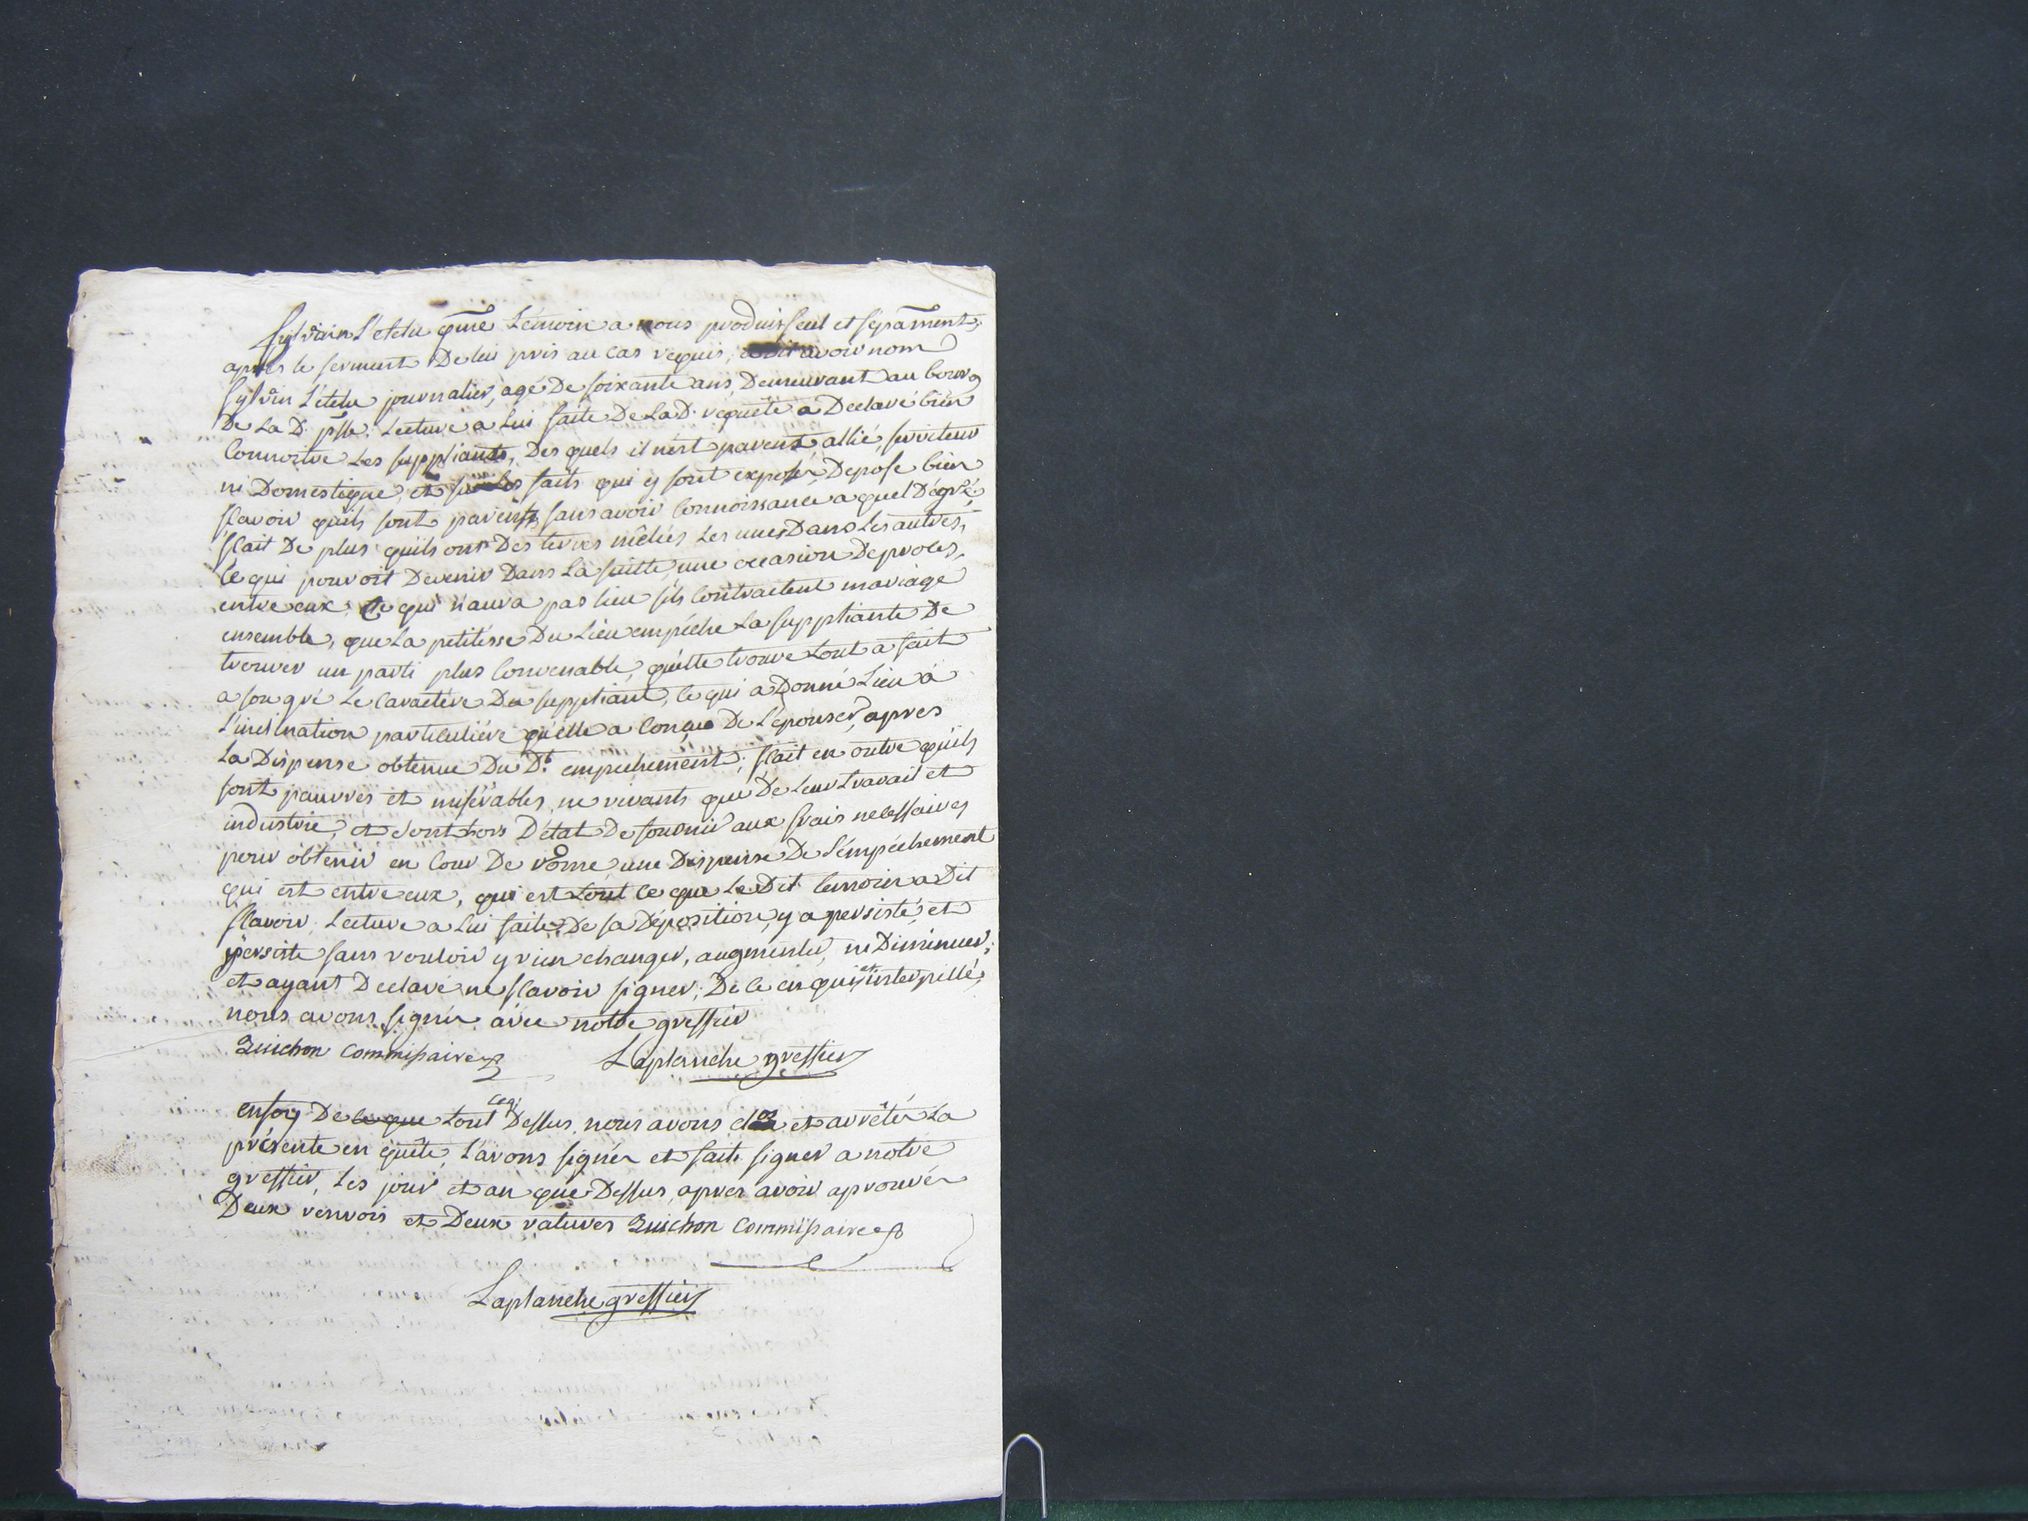 Sylvain L'etelu qme témoin a nous produit seul et sépament,
après le serment De lui pris au cas requis, a dit avoir nom
Sylvain L'etelu journalier, agé De soixante ans, Demeurant au bourg
De La D. psse. Lecture a Lui faite De La D. requête a Declaré bien
Connoitre Les suppliants, Des quels il n'est parent, allié, serviteur
ni Domestique, et sur les faits qui y sont exposés, Depose bien
scavoir qu'ils sont parents, sans avoir Connoissance a quel Dégré,
scait De plus qu'ils ont Des terres mêlées Les unes Dans Les autres,
Ce qui pouroit Devenir Dans La suitte une occasion De procès
entre eux; Ce qui n'aura pas lieu s'ils Contractent mariage
ensemble, que La petitesse Du Lieu empêche La suppliante De
trouver un parti plus Convenable, qu'elle trouve tout a fait
a son gré Le Caractére Du suppliant, Ce qui a Donné Lieu à
L'inclination particuliére qu'elle a Conçue De L'épouser, apres
La Dispense obtenue Du Dt. empechement; scait en outre qu'ils
sont pauvres et misérables, ne vivants que De Leur travail et
industrie, et sont hors D'état De fournir aux frais necessaires
pour obtenir en Cour De rome une Dispense De L'empêchement
qui est entre eux, qui est tout Ce que Le Dit temoin a Dit
scavoir; Lecture a Lui faite De sa Déposition, y a persisté, et
persiste sans vouloir y rien changer, augmenter, ni Diminuer;
et ayant Declaré ne scavoir signer, De Ce enquis et interpellé,
nous avons signé avec notre greffier
Guichon Commissaire Laplanche greffier
en foy De ce que tout Cequi Dessus, nous avons clos et arrêtés La
présente enquête, L'avons signée et fait signer a notre
greffier, Les jour et an que Dessus, apres avoir aprouvés
Deux renvois et Deux ratures Guichon Commissaire
Laplanche greffier